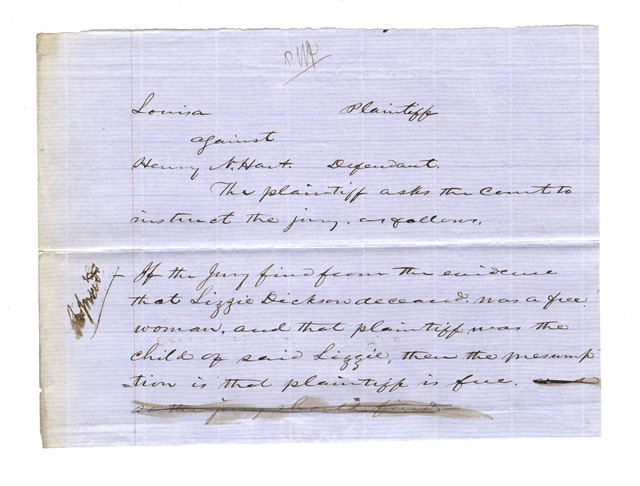 Louisa Plaintiff
against
Henry N. Hart. Defendant.
The plaintiff asks the Court to
instruct the jury. as follows.
If the Jury find from the evidence
that Lizzie Dickson deceased. was a free
woman, and that plaintiff was the
child of said Lizzie, then the presump
tion is that plaintiff is free.
so the jury should find
Refused